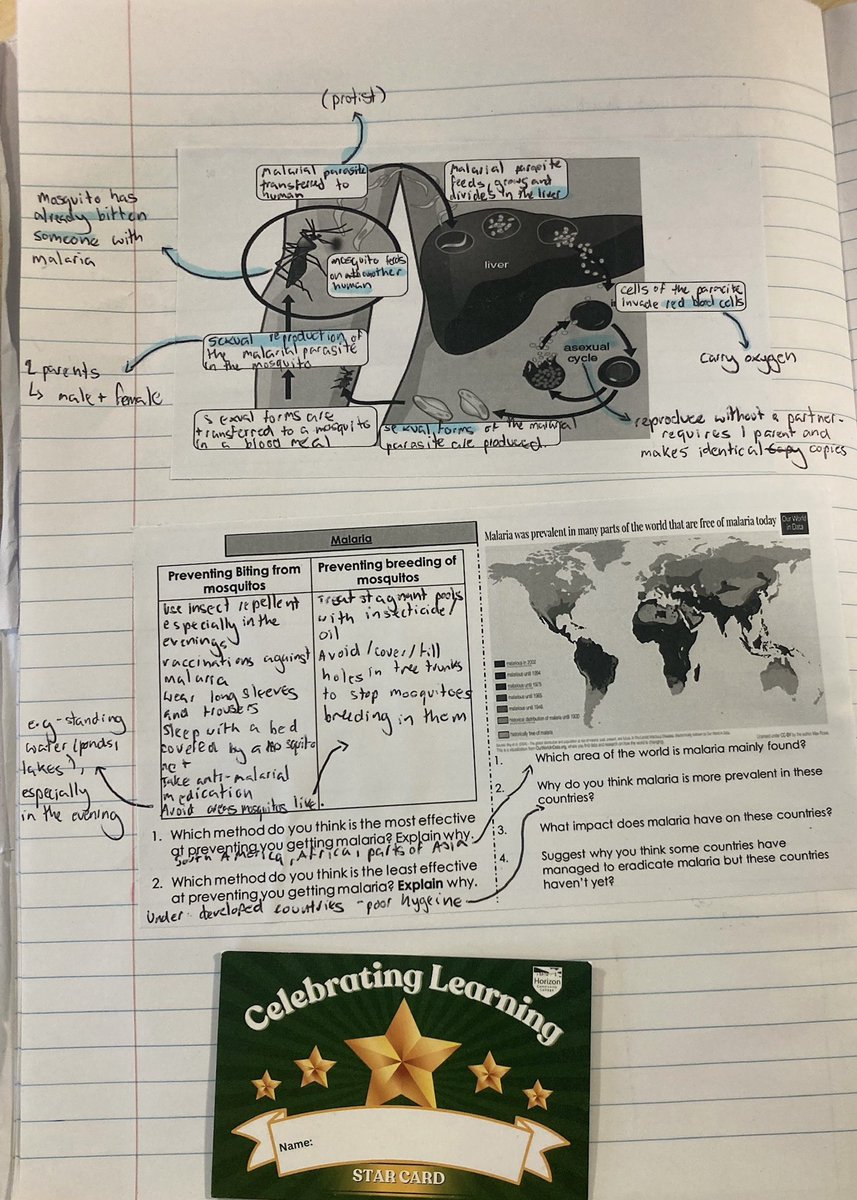 (protist)
malarial parasite
transferred to
human
Malarial parasite
feeds, grows and
divides in the liver
Mosquito has
already bitten
someone with
malaria
mosquito feeds
on another
human
liver
cells of the parasite
invade red blood cells
carry oxygen
asexual
cycle
sexual reproduction of
the malarial parasite
in the mosquito
2 parents
↳ male + female
sexual forms are
transferred to a mosquito
in a blood meal
sexual forms of the malarial
parasite are produced.
reproduce without a partner-
requires 1 parent and
makes identical copy copies
Malaria
Preventing Biting from
mosquitos
Use insect repellent
especially in the
evenings
vaccinations against
malaria
wear long sleeves
and trousers
Sleep with a bed
covered by a mosquito
net
Take anti-malarial
medication
Avoid areas mosquitos live.
Preventing breeding of
mosquitos
Treat stagnant pools
with insecticide/
oil
Avoid/cover/fill
holes in tree trunks
to stop mosquitoes
breeding in them
e.g-standing
water (ponds,
lakes),
especially
in the evening
1. Which method do you think is the most effective
at preventing you getting malaria? Explain why.
South America, Africa, parts of Asia
2. Which method do you think is the least effective
at preventing you getting malaria? Explain why.
Under-developed countries - poor hygeine
Malaria was prevalent in many parts of the world that are free of malaria today
Our World
in Data
historically free of malaria
1. Which area of the world is malaria mainly found?
2. Why do you think malaria is more prevalent in these
countries?
3. What impact does malaria have on these countries?
4. Suggest why you think some countries have
managed to eradicate malaria but these countries
haven't yet?
Celebrating Learning
Horizon
Name:
STAR CARD